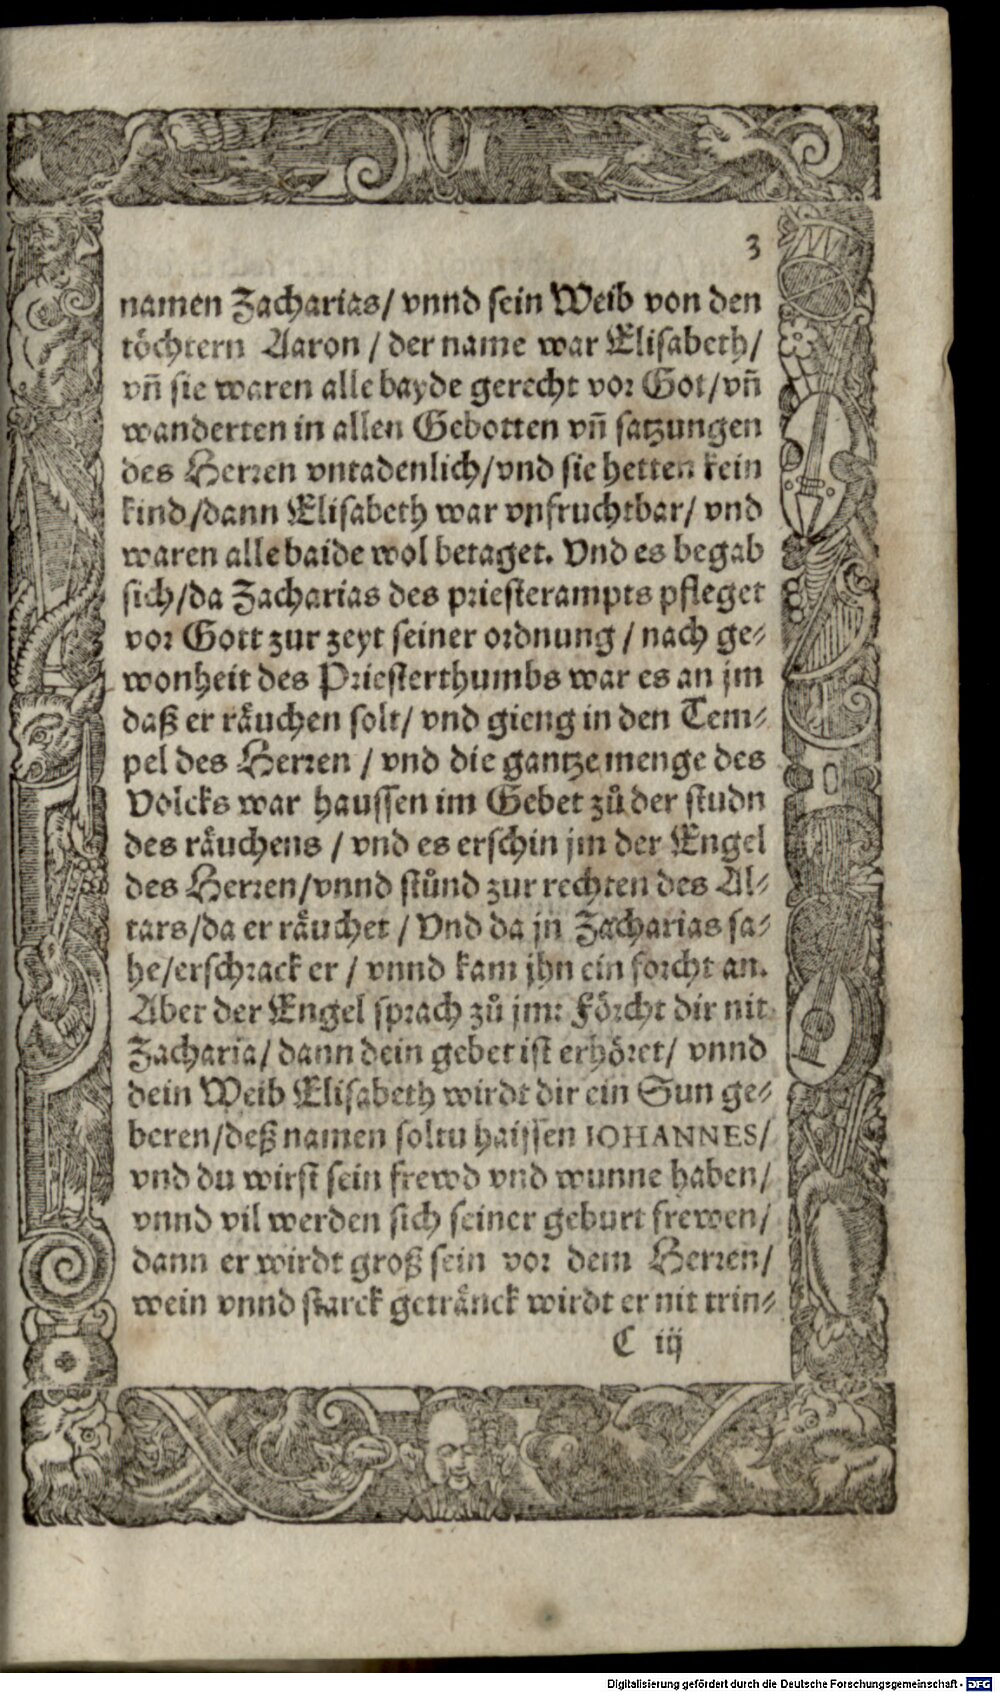 3
namen Zacharias/ vnnd sein Weib von den
töchtern Aaron / der name war Elisabeth/
vn̄ sie waren alle bayde gerecht vor Got/vn̄
wanderten in allen Gebotten vn̄ satzungen
des Herren vntadenlich/vnd sie hetten kein
kind/dann Elisabeth war vnfruchtbar/ vnd
waren alle baide wol betaget. Vnd es begab
sich/da Zacharias des priesterampts pfleget
vor Gott zur zeyt seiner ordnung / nach ge⸗
wonheit des Priesterthumbs war es an jm
daß er raͤuchen solt/ vnd gieng in den Tem⸗
pel des Herren / vnd die gantze menge des
Volcks war haussen im Gebet zuͦ der studn
des raͤuchens / vnd es erschin jm der Engel
des Herren/vnnd stuͦnd zur rechten des Al⸗
tars/da er raͤuchet / Vnd da jn Zacharias sa⸗
he/erschrack er / vnnd kam jhn ein forcht an.
Aber der Engel sprach zuͦ jm: Foͤrcht dir nit
Zacharia/ dann dein gebet ist erhoͤret/ vnnd
dein Weib Elisabeth wirdt dir ein Sun ge⸗
beren/deß namen soltu haissen IOHANNES/
vnd du wirst sein frewd vnd wunne haben/
vnnd vil werden sich seiner geburt frewen/
dann er wirdt groß sein vor dem Herren/
wein vnnd starck getraͤnck wirdt er nit trin⸗
C iij
Digitalisierung gefördert durch die Deutsche Forschungsgemeinschaft - DFG